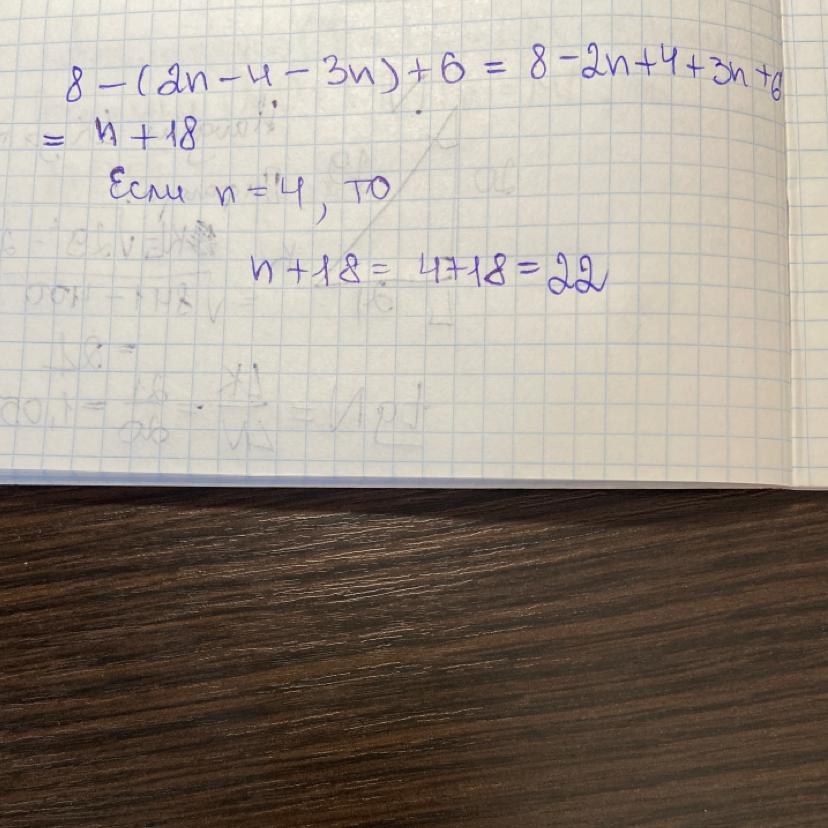 8 - (2n - 4 - 3n) + 6 = 8 - 2n + 4 + 3n + 6
= n + 18
Если n = 4, то
n + 18 = 4 + 18 = 22